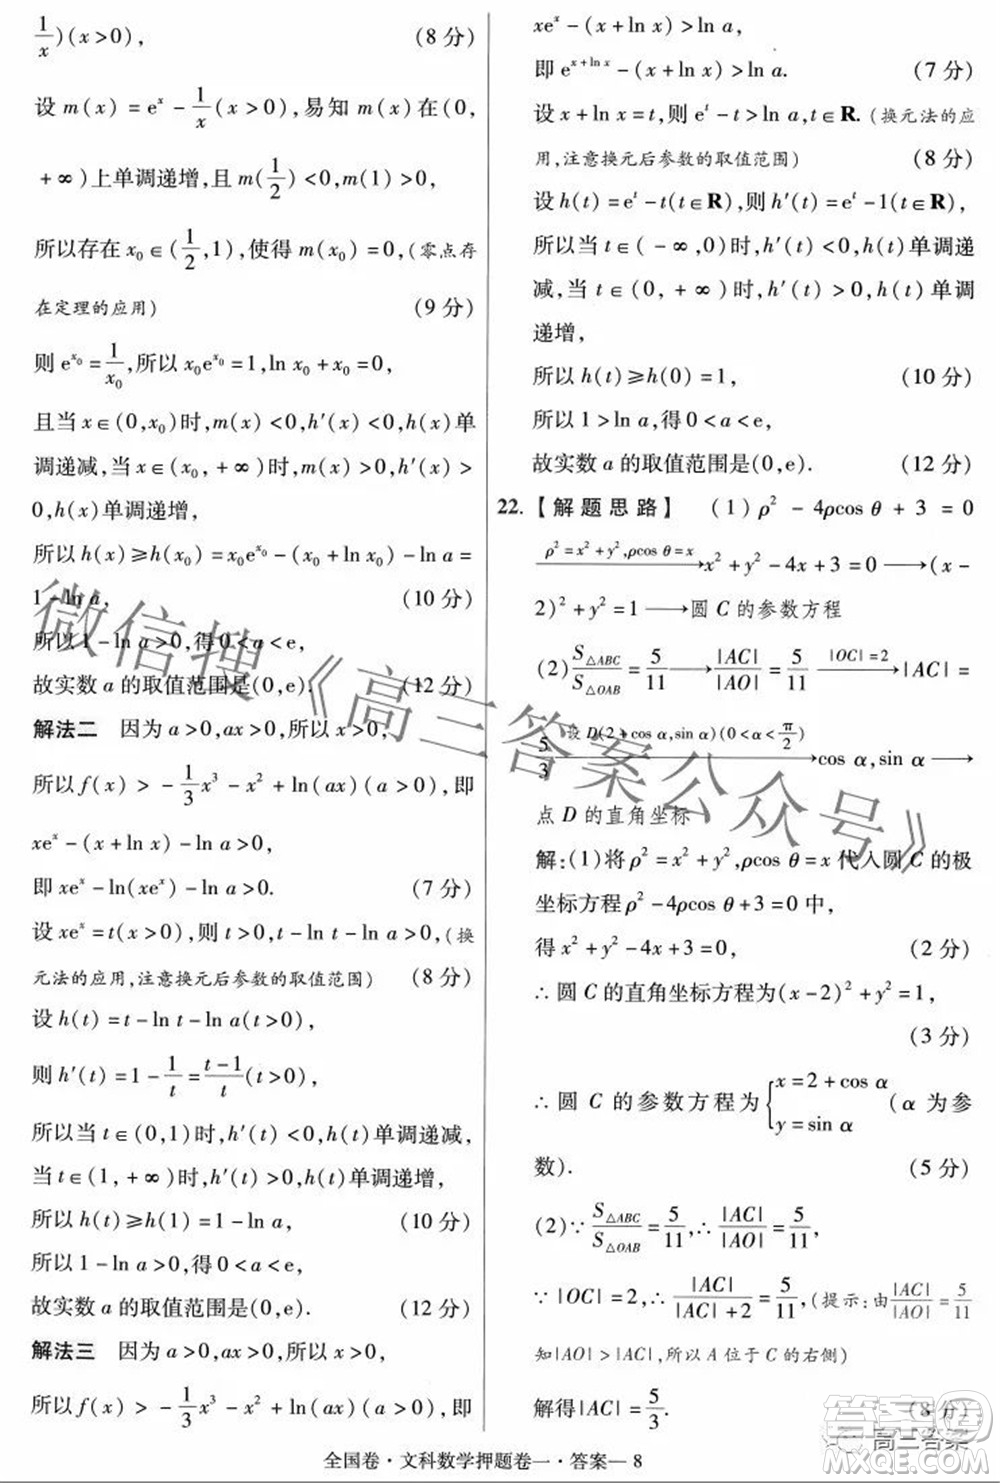 1/x)(x>0), (8分)
设 m(x)=eˣ-1/x(x>0),易知 m(x)在(0,
+∞)上单调递增,且 m(1/2)<0,m(1)>0,
所以存在 x₀∈(1/2,1),使得 m(x₀)=0,(零点存
在定理的应用) (9分)
则 e^{x₀}=1/x₀,所以 x₀e^{x₀}=1,ln x₀+x₀=0,
且当 x∈(0,x₀)时,m(x)<0,h′(x)<0,h(x)单
调递减,当 x∈(x₀,+∞)时,m(x)>0,h′(x)>
0,h(x)单调递增,
所以 h(x)≥h(x₀)=x₀e^{x₀}-(x₀+ln x₀)-ln a=
1-ln a, (10分)
所以 1-ln a>0,得 0<a<e,
故实数 a 的取值范围是(0,e). (12分)
解法二 因为 a>0,ax>0,所以 x>0,
所以 f(x)>-1/3x³-x²+ln(ax)+x,即
xeˣ-(x+ln x)-ln a>0,
即 xeˣ-ln(xeˣ)-ln a>0. (7分)
设 xeˣ=t(x>0),则 t>0,t-ln t-ln a>0,(换
元法的应用,注意换元后参数的取值范围) (8分)
设 h(t)=t-ln t-ln a(t>0),
则 h′(t)=1-1/t=(t-1)/t(t>0),
所以当 t∈(0,1)时,h′(t)<0,h(t)单调递减,
当 t∈(1,+∞)时,h′(t)>0,h(t)单调递增,
所以 h(t)≥h(1)=1-ln a, (10分)
所以 1-ln a>0,得 0<a<e,
故实数 a 的取值范围是(0,e). (12分)
解法三 因为 a>0,ax>0,所以 x>0,
所以 f(x)>-1/3x³-x²+ln(ax)+x,即
xeˣ-(x+ln x)>ln a,
即 e^{x+ln x}-(x+ln x)>ln a. (7分)
设 x+ln x=t,则 eᵗ-t>ln a,t∈R.(换元法的应
用,注意换元后参数的取值范围) (8分)
设 h(t)=eᵗ-t(t∈R),则 h′(t)=eᵗ-1(t∈R),
所以当 t∈(-∞,0)时,h′(t)<0,h(t)单调递
减,当 t∈(0,+∞)时,h′(t)>0,h(t)单调
递增,
所以 h(t)≥h(0)=1, (10分)
所以 1>ln a,得 0<a<e,
故实数 a 的取值范围是(0,e). (12分)
22.【解题思路】 (1)ρ²-4ρcos θ+3=0
ρ²=x²+y²,ρcos θ=x→x²+y²-4x+3=0→(x-
2)²+y²=1→圆 C 的参数方程
(2)S△ABC/S△OAB=5/11→|AC|/|AO|=5/11 |OC|=2→|AC|=
5/3 设 D(2+cos α,sin α)(0<α<π/2)→cos α,sin α→
点 D 的直角坐标
解:(1)将 ρ²=x²+y²,ρcos θ=x 代入圆 C 的极
坐标方程 ρ²-4ρcos θ+3=0 中,
得 x²+y²-4x+3=0, (2分)
∴圆 C 的直角坐标方程为(x-2)²+y²=1,
(3分)
∴圆 C 的参数方程为{x=2+cos α y=sin α(α 为参
数). (5分)
(2)∵S△ABC/S△OAB=5/11,∴|AC|/|AO|=5/11,
∵|OC|=2,∴|AC|/(|AC|+2)=5/11,(提示:由|AC|/|AO|=5/11
知|AO|>|AC|,所以 A 位于 C 的右侧)
解得|AC|=5/3. (8分)
全国卷·文科数学押题卷一·答案—8
微信搜《高三答案公众号》
高三答案